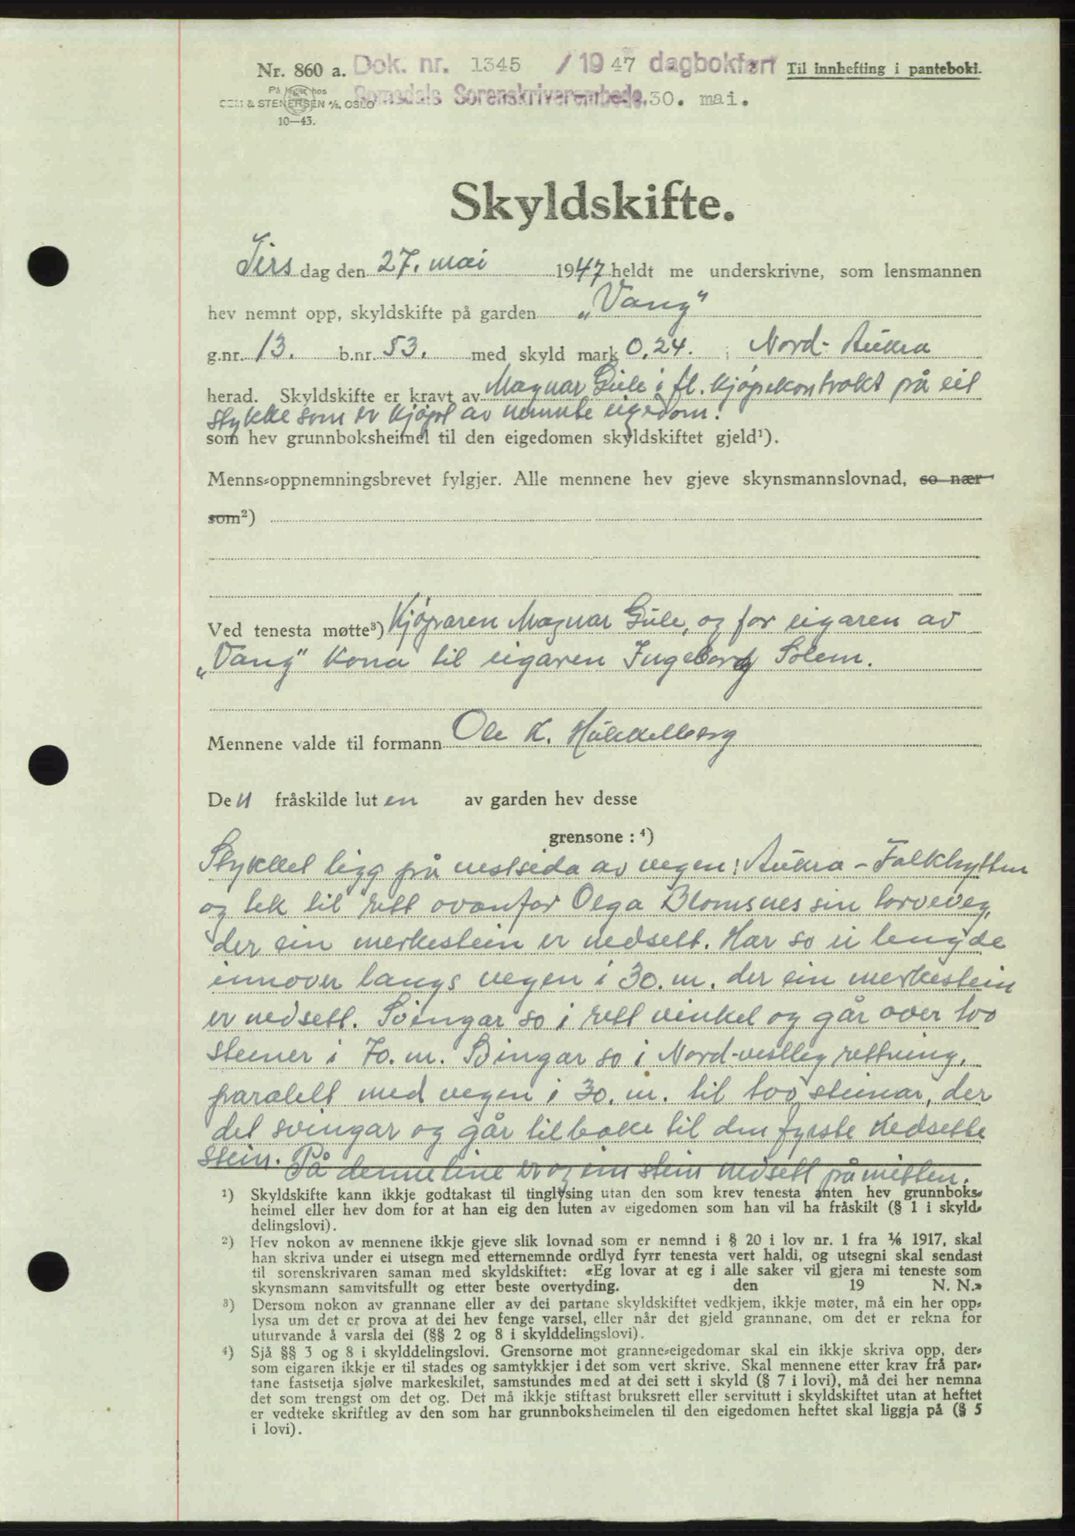 Nr. 860 a. Dok. nr. 1345 / 1947 dagbokført Til innhefting i panteboki.
På lager hos Romsdals Sorenskriverembede, 30. mai.
SEM & STENERSEN A/S, OSLO
10—43.
Skyldskifte.
Tirs dag den 27. mai 1947 heldt me underskrivne, som lensmannen
hev nemnt opp, skyldskifte på garden „Vang“
g.nr. 13. b.nr. 53. med skyld mark 0,24. i Nord-Aukra
herad. Skyldskifte er kravt av Magnar Gule i fl. kjøpekontrakt på eit
stykke som er kjøpt av nemnte eigedom.
som hev grunnboksheimel til den eigedomen skyldskiftet gjeld¹).
Menns-oppnemningsbrevet fylgjer. Alle mennene hev gjeve skynsmannslovnad, so nær
som²)
Ved tenesta møtte³) Kjøparen Magnar Gule, og for eigaren av
„Vang“ kona til eigaren Ingeborg Solem.
Mennene valde til formann Ole K.
Den fråskilde luten av garden hev desse
grensone: ⁴)
Stykket ligg på vestsida av vegen: Aukra - Falkhytten
og tek til rett ovanfor Olga Blomsnes sin torvveg,
der ein merkestein er nedsett. Har so ei lengde
innover langs vegen i 30. m. der ein merkestein
er nedsett. Svingar so i rett vinkel og går over too
steiner i 70. m. Svingar so i Nord-vestleg rettning,
paralelt med vegen i 30. m. til too steinar, der
det svingar og går tilbake til den fyrste nedsette
stein. På denne line er og ein stein nedsett på mitten.
¹) Skyldskifte kann ikkje godtakast til tinglysing utan den som krev tenesta anten hev grunnboks-
heimel eller hev dom for at han eig den luten av eigedomen som han vil ha fråskilt (§ 1 i skyld-
delingslovi).
²) Hev nokon av mennene ikkje gjeve slik lovnad som er nemnd i § 20 i lov nr. 1 fra ⅙ 1917, skal
han skriva under ei utsegn med etternemnde ordlyd fyrr tenesta vert haldi, og utsegni skal sendast
til sorenskrivaren saman med skyldskiftet: «Eg lovar at eg i alle saker vil gjera mi teneste som
skynsmann samvitsfullt og etter beste overtyding. den 19 N. N.»
³) Dersom nokon av grannane eller av dei partane skyldskiftet vedkjem, ikkje møter, må ein her opp-
lysa um det er prova at dei hev fenge varsel, eller når det gjeld grannane, om det er rekna for
uturvande å varsla dei (§§ 2 og 8 i skylddelingslovi).
⁴) Sjå §§ 3 og 8 i skylddelingslovi. Grensorne mot granne-eigedomar skal ein ikkje skriva opp, der-
som eigaren ikkje er til stades og samtykkjer i det som vert skrive. Skal mennene etter krav frå par-
tane fastsetja sjølve markeskilet, samstundes med at dei sett i skyld (§ 7 i lovi), må dei her nemna
det som trengst om det og. Det må ikkje stiftast bruksrett eller servitutt i skyldskiftet utan at heftet
er vedteke skriftleg av den som har grunnboksheimelen til den eigedomen heftet skal liggja på (§ 5
i lovi).